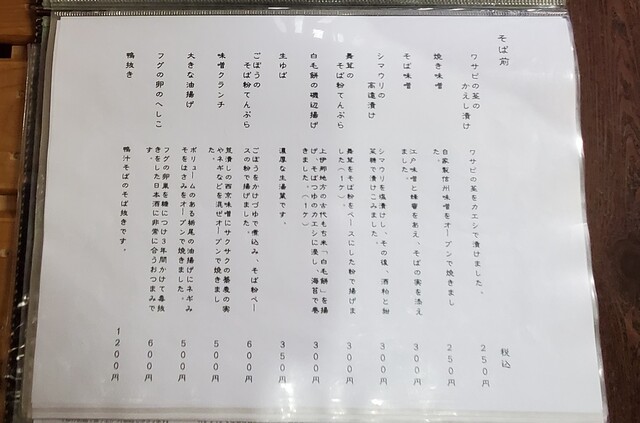 そば前
税込
ワサビの茎の
かえし漬け
ワサビの茎をカエシで漬けました。
250円
焼き味噌
自家製信州味噌をオーブンで焼きまし
た。
250円
そば味噌
江戸味噌と蜂蜜をあえ、そばの実を添え
ました。
300円
シマウリの
高遠漬け
シマウリを塩漬けし、その後、酒粕と粗
糖で漬けこみました。
300円
舞茸の
そば粉てんぷら
舞茸をそば粉をベースにした粉で揚げま
した(1ケ)。
300円
白毛餅の磯辺揚げ
上伊那地方の古代もち米「白毛餅」を揚
げ、そばつゆのカエシに浸し、海苔で巻
きました。(1ケ)
300円
生ゆば
濃厚な生湯葉です。
350円
ごぼうの
そば粉てんぷら
ごぼうをかけづゆで煮込み、そば粉ベー
スの粉で揚げました。
600円
味噌クランチ
荒潰しの西京味噌にサクサクの蕎麦の実
やネギなどを混ぜオーブンで焼きまし
た。
500円
大きな油揚げ
ボリュームのある栃尾の油揚げにネギみ
そをはさみをオーブンで焼きました。
500円
フグの卵のへしこ
フグの卵巣を糠につけ3年間かけて毒抜
きをした日本酒に非常に合うおつまみで
す。
600円
鴨抜き
鴨汁そばのそば抜きです。
1200円